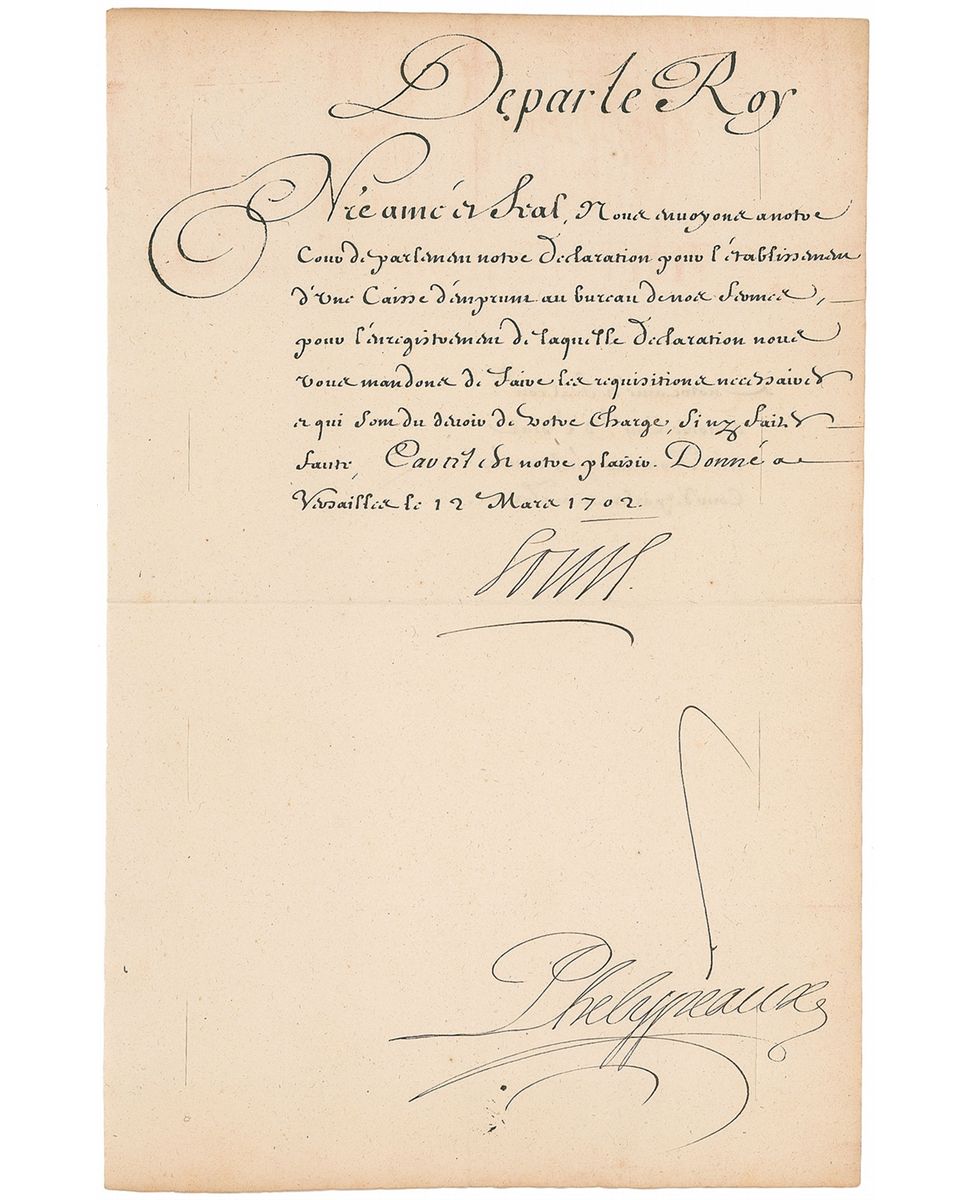 De par le Roy
Nre amé et feal, Nous envoyons a notre
Cour de parlement notre Declaration pour l'établissement
d'une Caisse d'emprunt au bureau de nos fermes,
pour l'enregistrement de laquelle Declaration nous
vous mandons de faire les requisitions necessaires
et qui sont du devoir de votre Charge, Si n'y faites
faute, Car tel est notre plaisir. Donné a
Versailles le 12e Mars 1702.
Louis
Phelypeaux